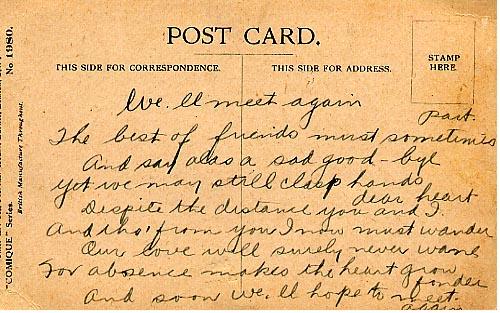 POST CARD.
THIS SIDE FOR CORRESPONDENCE.
THIS SIDE FOR ADDRESS.
STAMP
HERE.
We'll meet again
The best of friends must sometimes part.
And say alas a sad good-bye
Yet we may still clasp hands dear heart
Despite the distance you and I
And tho' from you I now must wander
Our love will surely never wane
For absence makes the heart grow fonder
And soon we'll hope to meet again
"COMIQUE" Series.
No 1980.
British Manufacture Throughout.